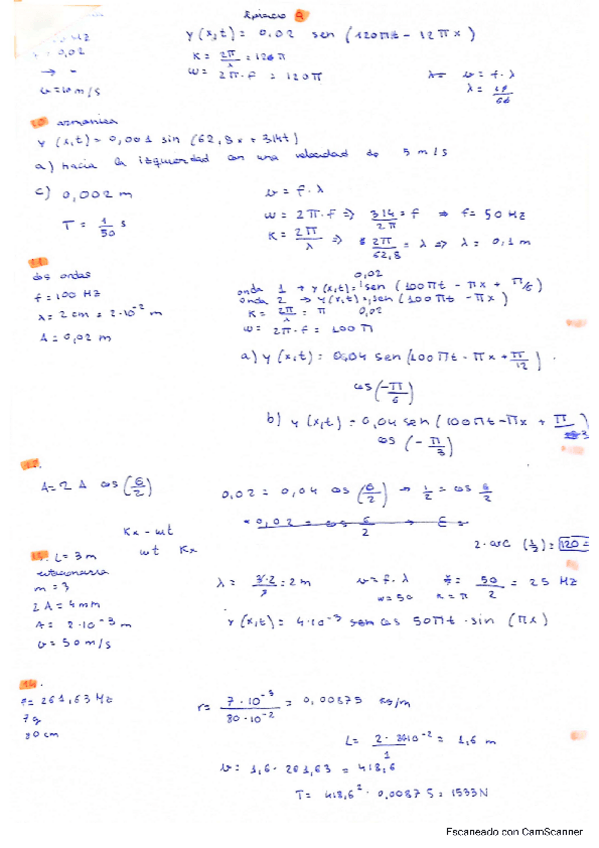 Ejercicio 9
Hz
0,02
v=10 m/s
y(x,t) = 0,02 sen (120πt - 12πx)
K = 2π/λ = 12π
w = 2π·f = 120π
v = f·λ
10 armonica
y(x,t) = 0,001 sin (62,8x + 314t)
a) hacia la izquierdad con una velocidad de 5 m/s
c) 0,002 m
v = f·λ
T = 1/50 s
w = 2π·f => 314/2π = f => f = 50 Hz
K = 2π/λ => 2π/62,8 = λ => λ = 0,1 m
11
dos ondas
f = 100 Hz
λ = 2 cm = 2·10⁻² m
A = 0,02 m
0,02
onda 1 → y(x,t) = sen (100πt - πx + π/6)
onda 2 → y(x,t) = sen (100πt - πx)
0,02
K = 2π/λ = π
w = 2π·f = 100π
a) y(x,t) = 0,04 sen (100πt - πx + π/12)
cos (-π/6)
b) y(x,t) = 0,04 sen (100πt - πx + π/3
cos (-π/3)
12.
A = 2A cos (6/2)
0,02 = 0,04 cos (6/2) → 1/2 = cos 6/2
2·arc (1/2) = 120
Kx - wt
wt Kx
13. L = 3 m
estacionaria
m = 3
2A = 4mm
A = 2·10⁻³ m
v = 50 m/s
λ = 3·2/3 = 2 m
v = f·λ
w = 50 K = π
f = 50/2 = 25 Hz
y(x,t) = 4·10⁻³ cos 50πt · sin (πx)
14.
f = 261,63 Hz
7g
80 cm
r = 7·10⁻³/80·10⁻² = 0,00875 kg/m
L = 2·80·10⁻²/1 = 1,6 m
v = 1,6·261,63 = 418,6
T = 418,6² · 0,00875 = 1533N
Escaneado con CamScanner